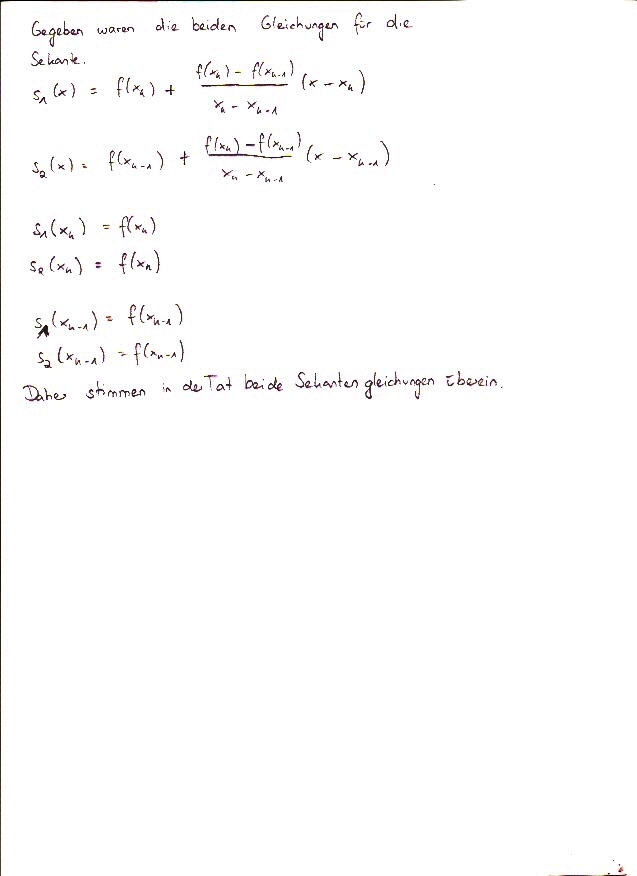 Gegeben waren die beiden Gleichungen für die
Sekante.
s₁(x) = f(xₙ) + (f(xₙ) - f(xₙ₋₁))/(xₙ - xₙ₋₁) (x - xₙ)
s₂(x) = f(xₙ₋₁) + (f(xₙ) - f(xₙ₋₁))/(xₙ - xₙ₋₁) (x - xₙ₋₁)
s₁(xₙ) = f(xₙ)
s₂(xₙ) = f(xₙ)
s₁(xₙ₋₁) = f(xₙ₋₁)
s₂(xₙ₋₁) = f(xₙ₋₁)
Daher stimmen in der Tat beide Sekantengleichungen überein.